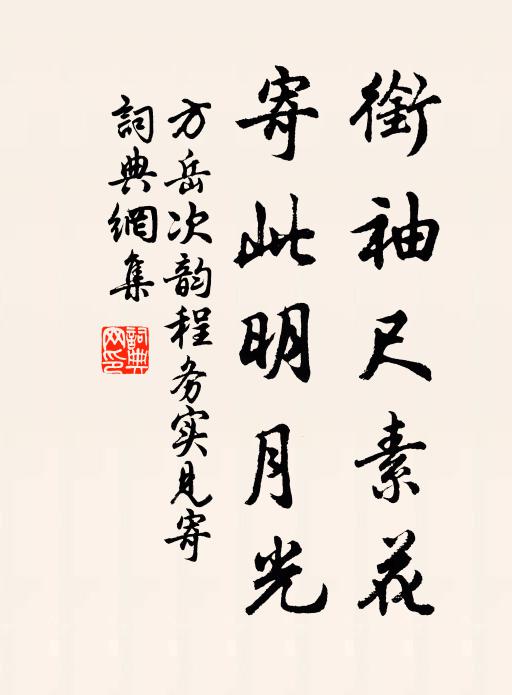 銜袖尺素花
寄此明月光
方岳次韵程务实见寄
詞典網集
詞典网印